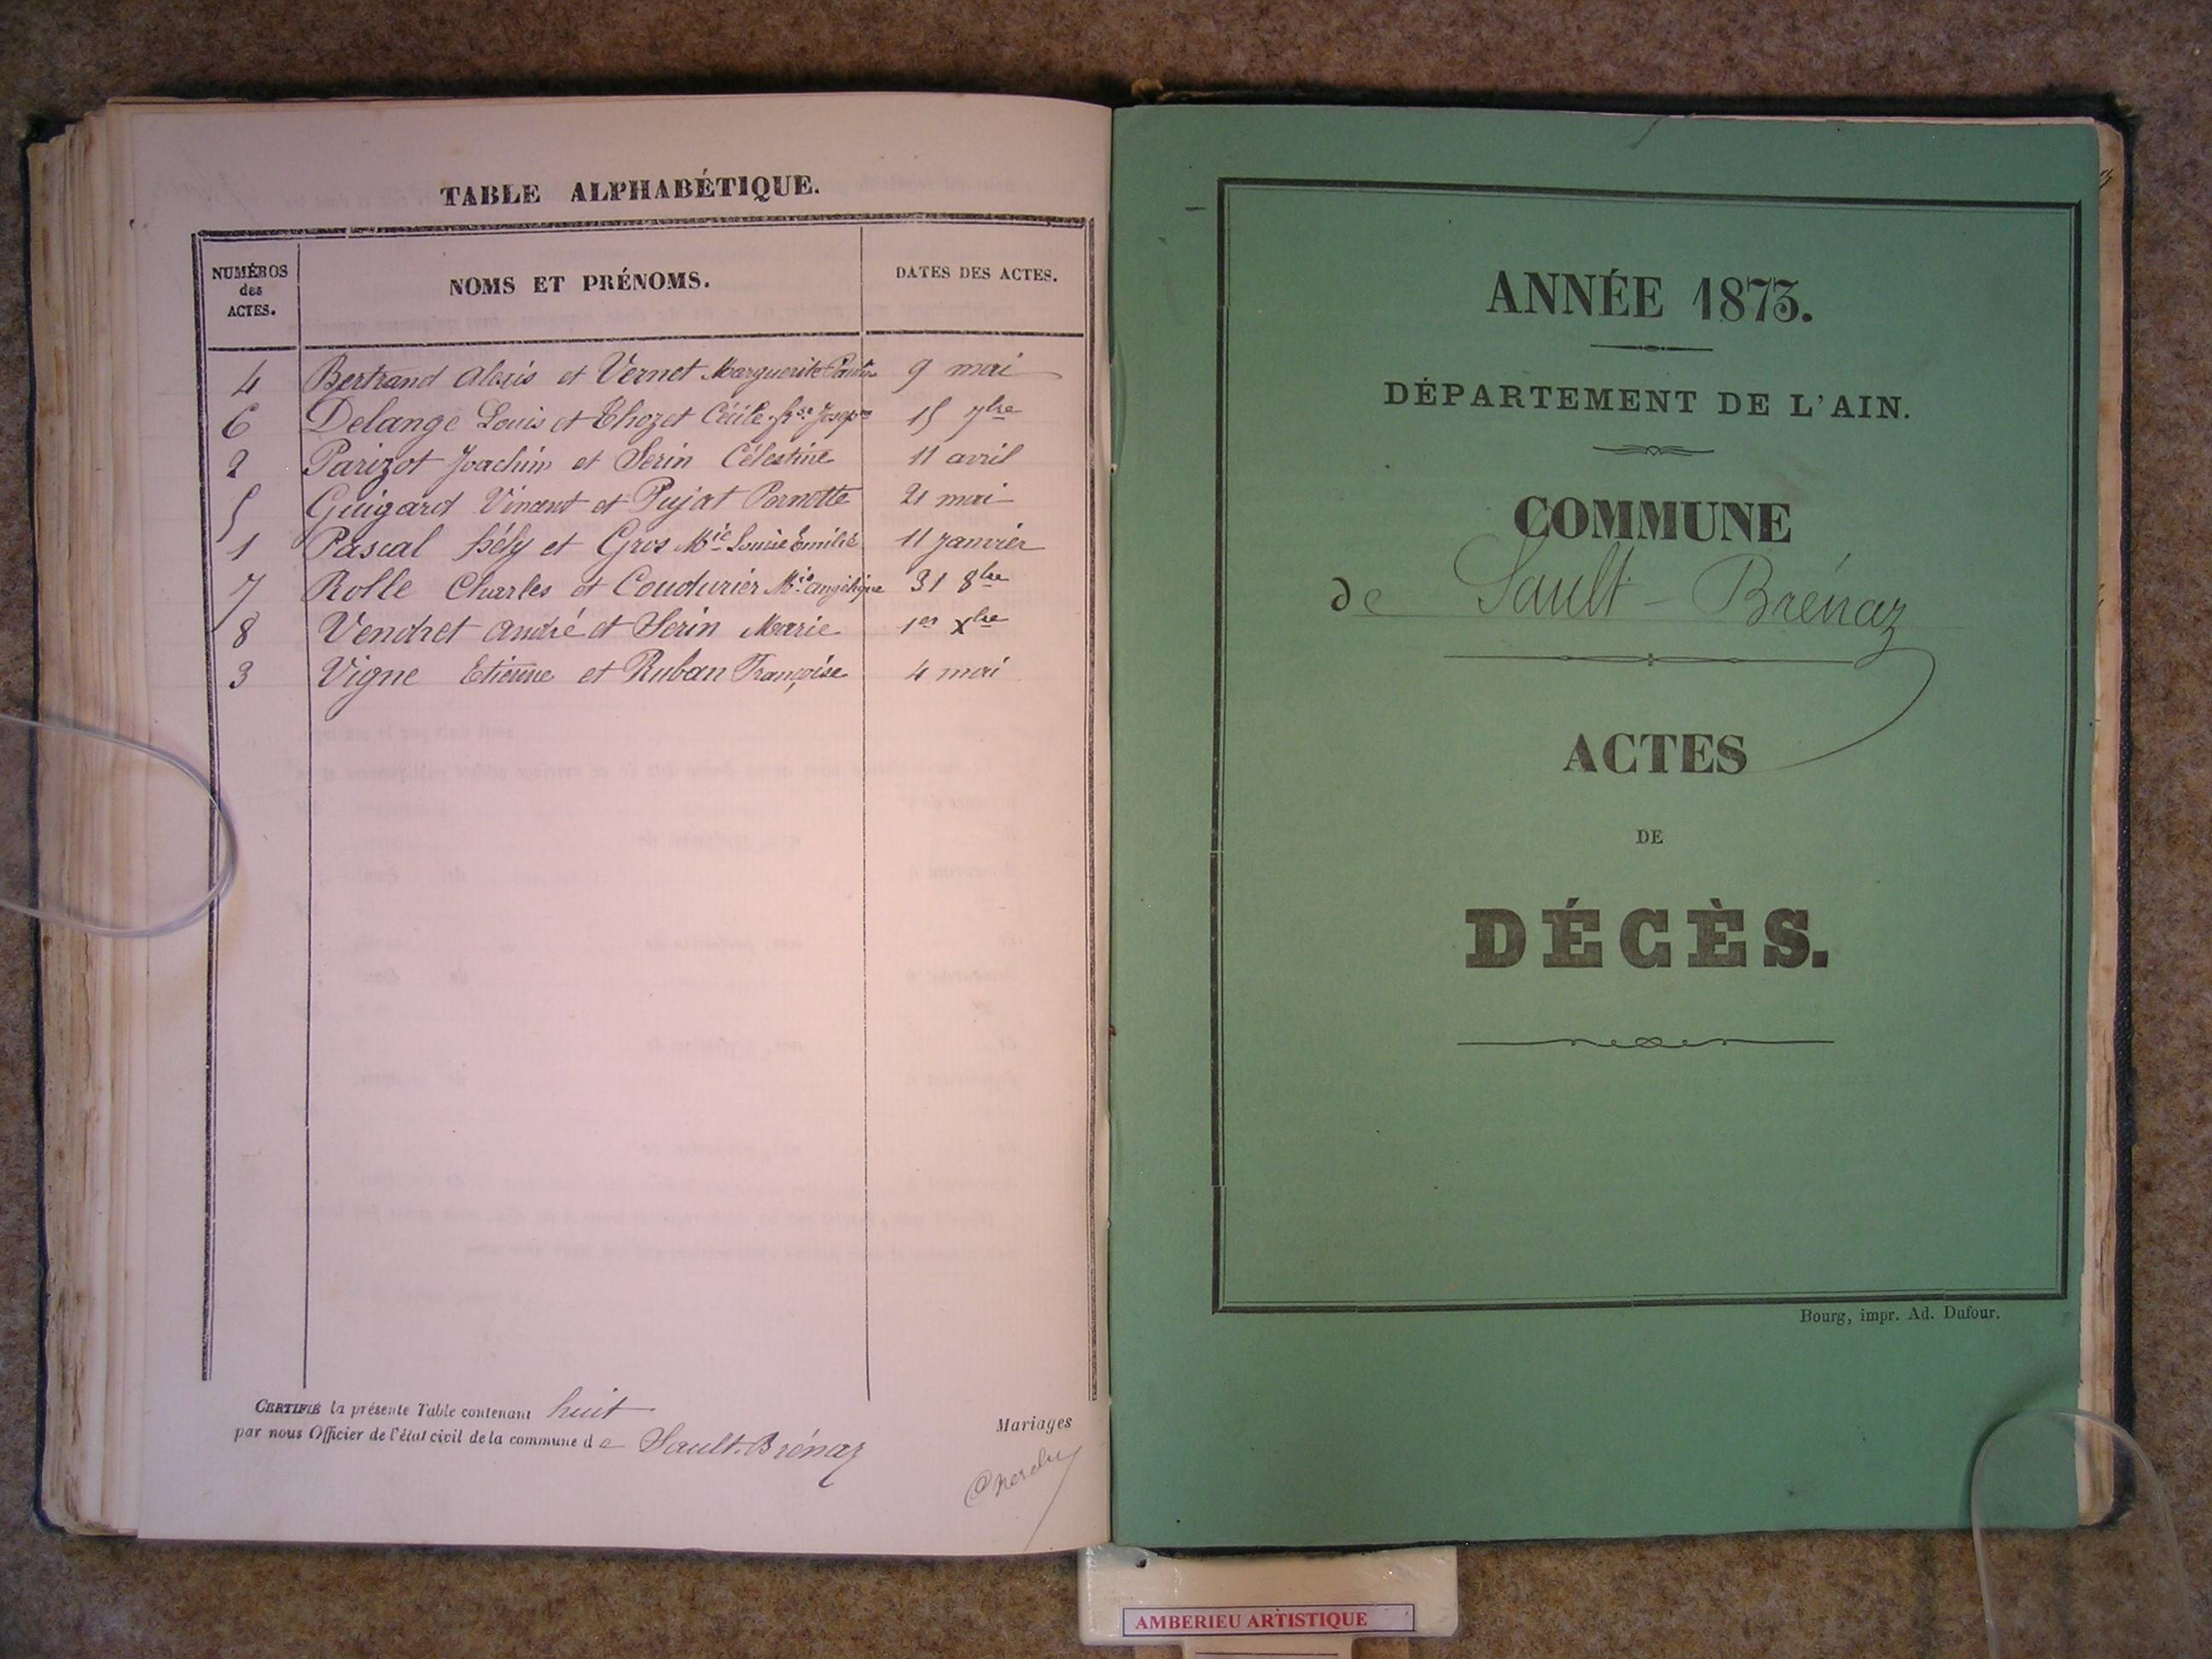 TABLE ALPHABÉTIQUE.
NUMÉROS des ACTES.
NOMS ET PRÉNOMS.
DATES DES ACTES.
4 Bertrand Alexis et Vernet Marguerite 9 mai
6 Delange Louis et Thozet Cécile 15 7bre
2 Parizot Joachim et Serin Célestine 11 avril
5 Guigard Vincent et Pujat Pernotte 21 mai
1 Pascal Hély et Gros Mie Louise Emilie 11 janvier
7 Rolle Charles et Coudurier Mie Angélique 31 8bre
8 Vendret André et Serin Marie 1er Xbre
3 Vigne Etienne et Ruban Françoise 4 mai
CERTIFIÉ la présente Table contenant huit Mariages
par nous Officier de l'état civil de la commune de Sault-Brénaz
ANNÉE 1873.
DÉPARTEMENT DE L'AIN.
COMMUNE
de Sault-Brénaz
ACTES
DE
DÉCÈS.
Bourg, impr. Ad. Dufour.
AMBERIEU ARTISTIQUE